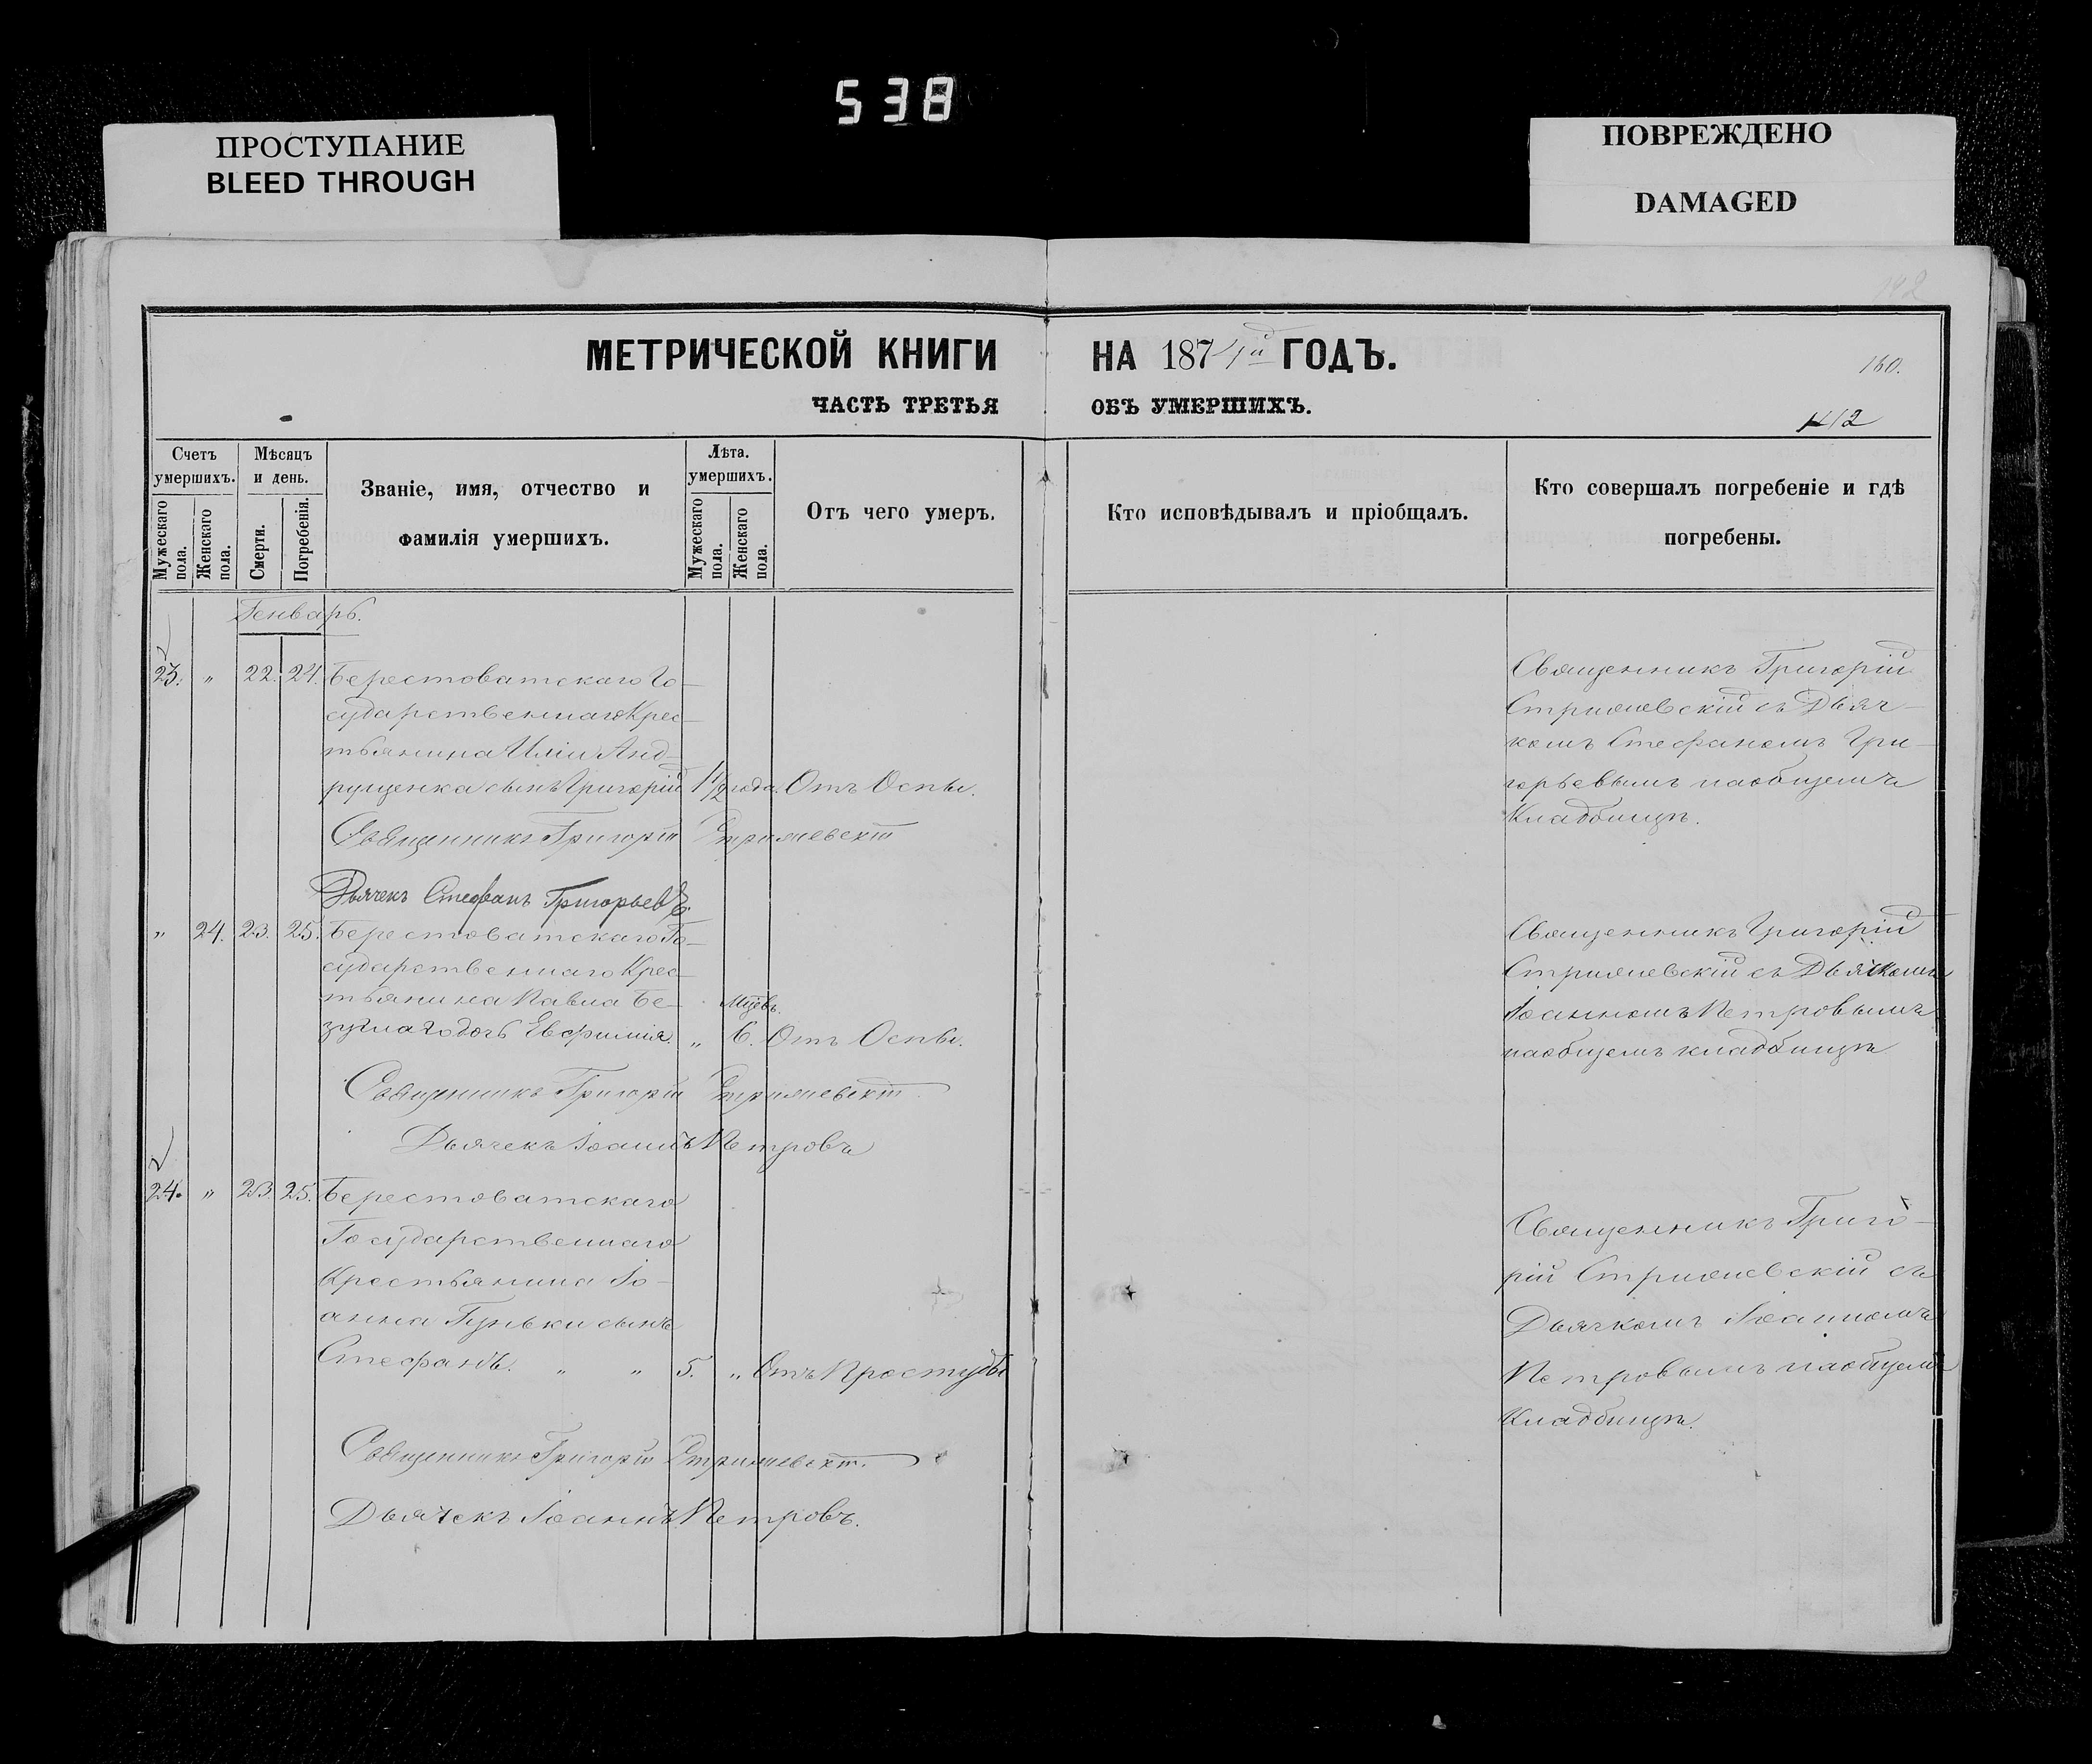 538
ПРОСТУПАНИЕ
BLEED THROUGH
ПОВРЕЖДЕНО
DAMAGED
МЕТРИЧЕСКОЙ КНИГИ НА 1874й ГОДЪ.
160.
ЧАСТЬ ТРЕТЬЯ ОБЪ УМЕРШИХЪ.
412
Счетъ умершихъ.
Мужескаго пола.
Женскаго пола.
Мѣсяцъ и день.
Смерти.
Погребенія.
Званіе, имя, отчество и
фамилія умершихъ.
Лѣта.
умершихъ.
Мужескаго пола.
Женскаго пола.
Отъ чего умеръ.
Кто исповѣдывалъ и пріобщалъ.
Кто совершалъ погребеніе и гдѣ
погребены.
Генварь.
23. " 22. 24. Берестоватскаго Го-
сударственнаго Крес-
тьянина Иліи Анд-
рущенка сынъ Григорій 1 1/2 года. Отъ Оспы.
Священникъ Григорій
Стриѫевскій съ Дьяч-
комъ Стефаномъ Гри-
горьевымъ на общемъ
Кладбищѣ.
Священникъ Григорій
Дьячекъ Стефанъ Григорьевъ.
" 24. 23. 25. Берестоватскаго Го-
сударственнаго Крес-
тьянина Павла Бе-
зуглаго дочь Евфимія. " Мцевъ. 6. Отъ Оспы.
Священникъ Григорій
съ Дьячкомъ
Іоанномъ Петровымъ
на общемъ кладбищѣ
Священникъ Григорій
Дьячекъ Іоаннъ Петровъ
24. " 23. 25. Берестоватскаго
Государственнаго
Крестьянина Іо-
анна Гуньки сынъ
Стефанъ. " " 5. " Отъ Простуды
Священникъ Григо-
рій съ
Дьячкомъ Іоанномъ
Петровымъ на общемъ
Кладбищѣ.
Священникъ Григорій
Дьячекъ Іоаннъ Петровъ.